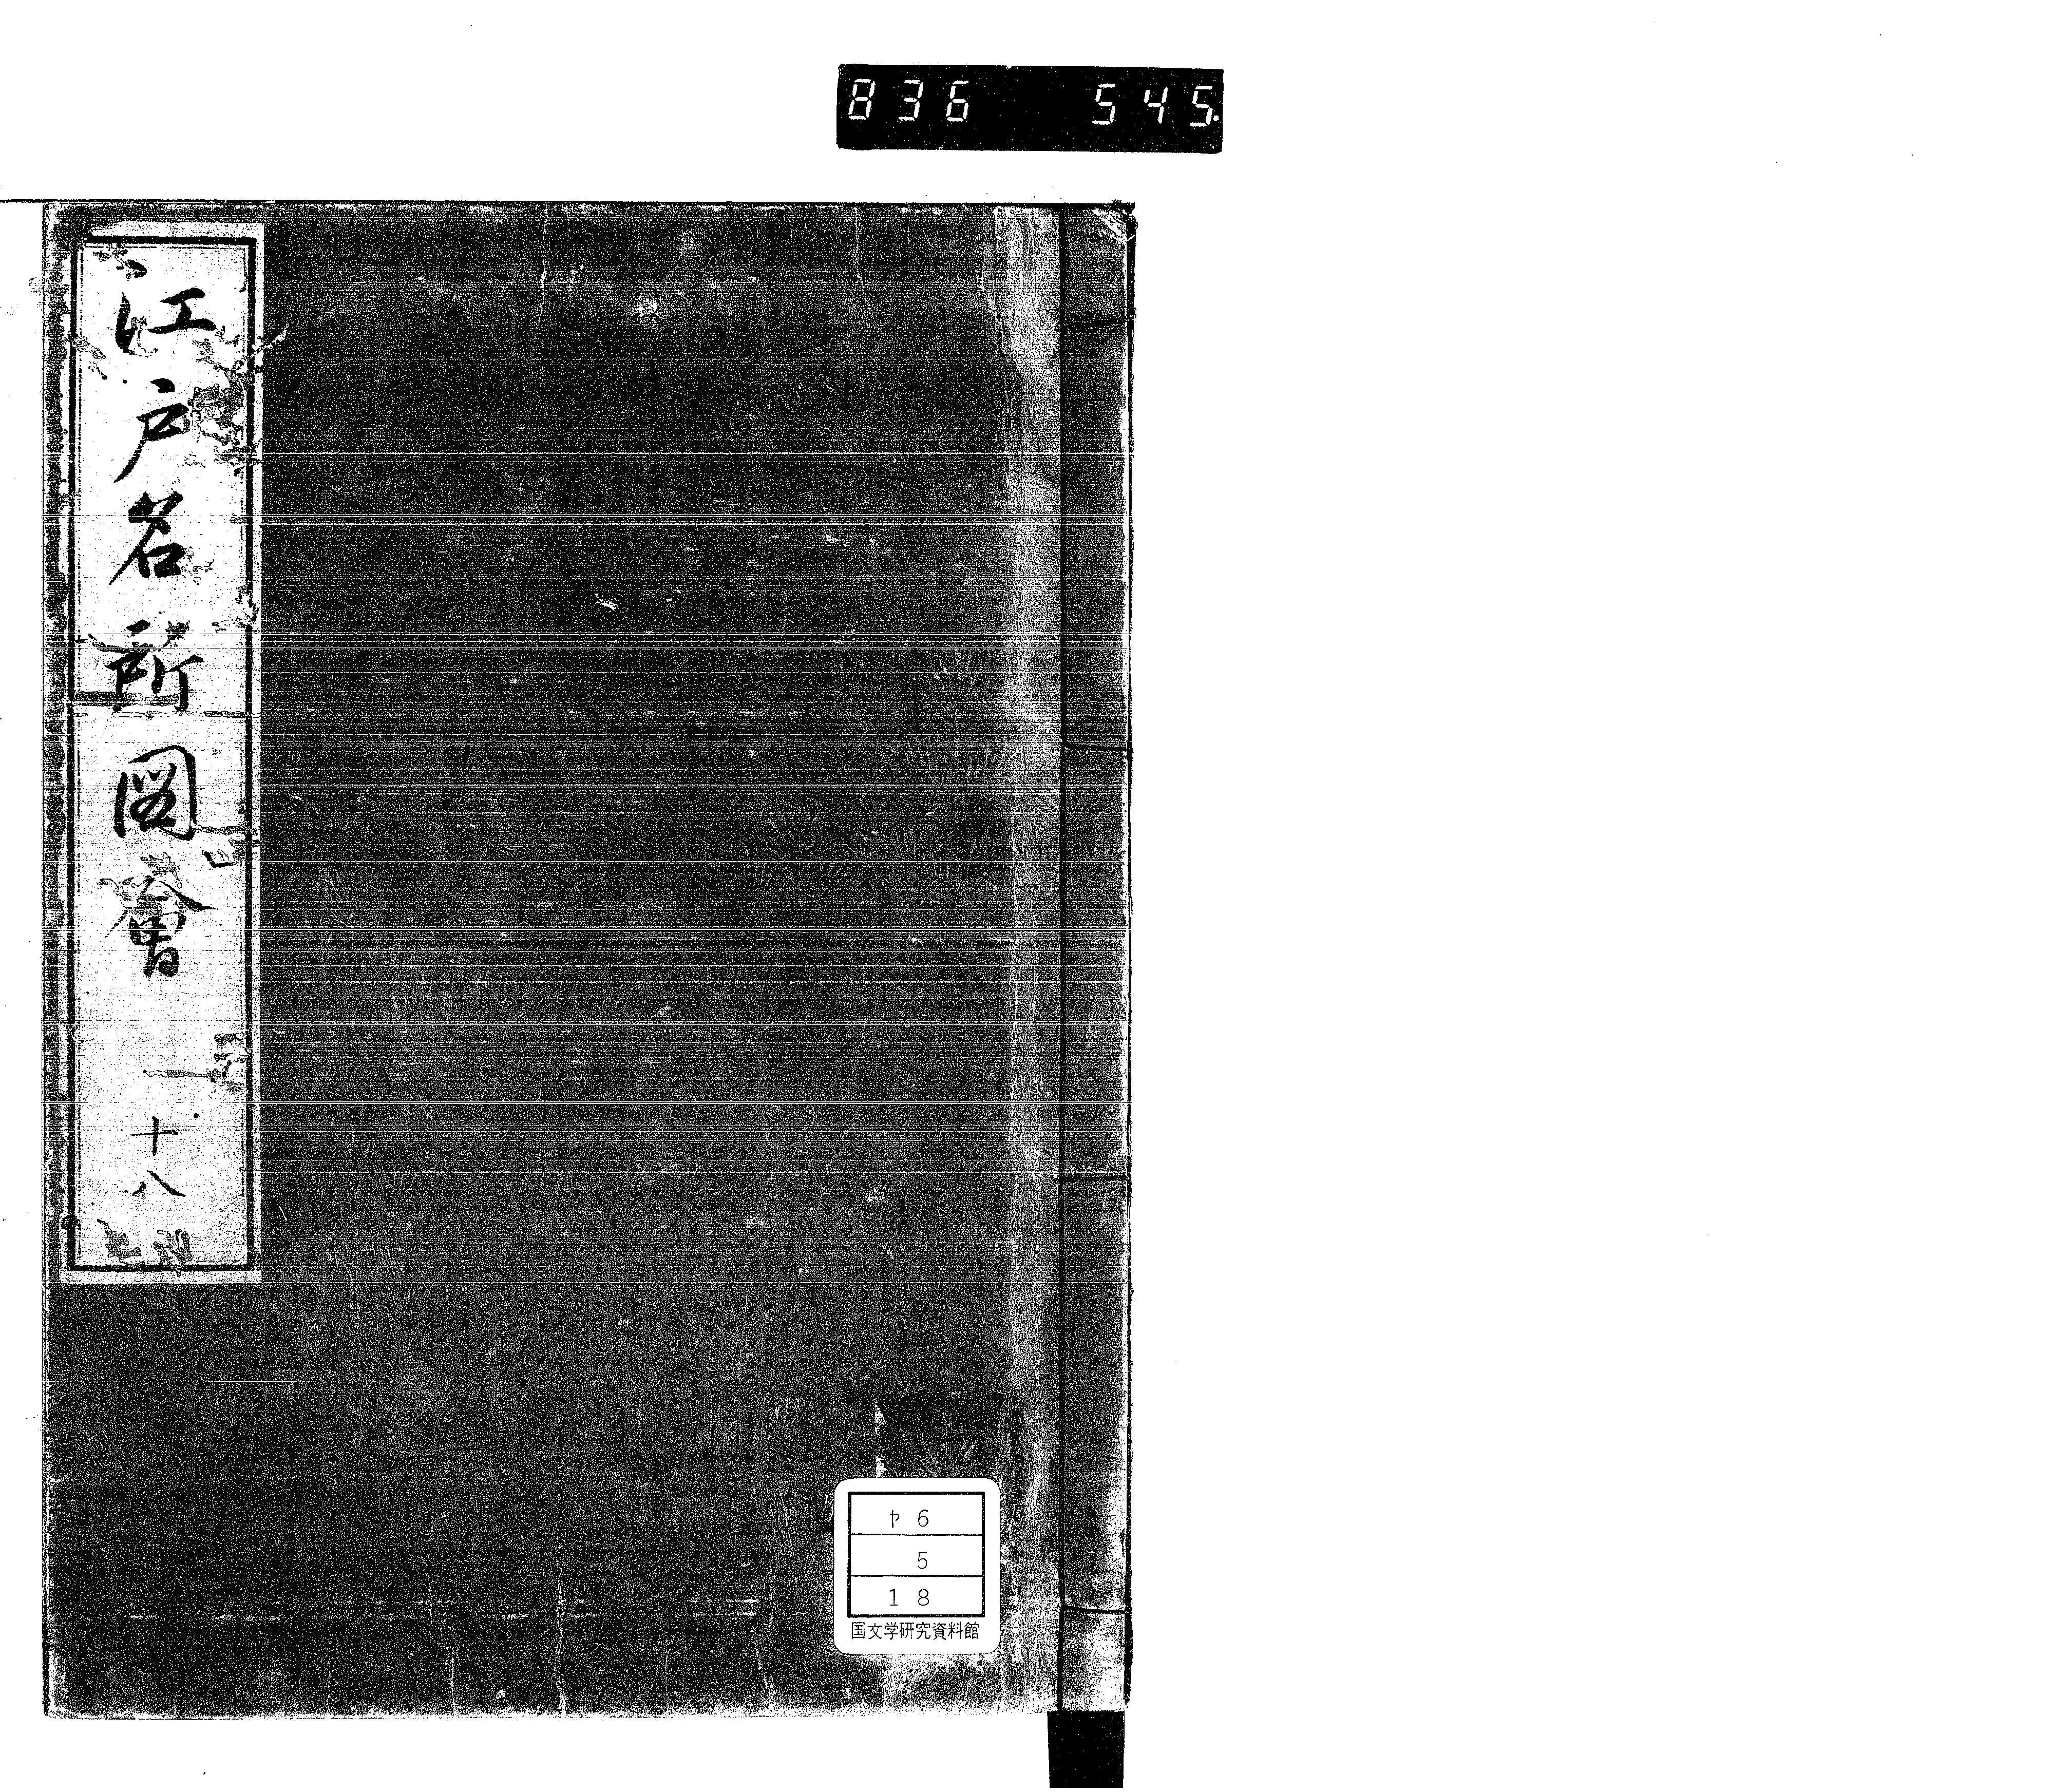 836 545.
江戸名所圖會 十八
ヤ6
5
18
国文学研究資料館